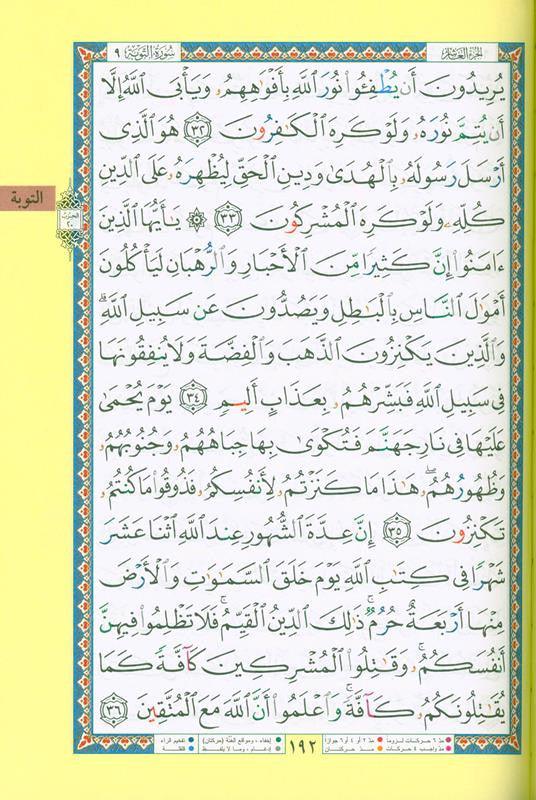 سُورَةُ التَّوْبَة ٩
الجزء العاشر
يُرِيدُونَ أَن يُطْفِـُٔوا۟ نُورَ ٱللَّهِ بِأَفْوَٰهِهِمْ وَيَأْبَى ٱللَّهُ إِلَّآ
أَن يُتِمَّ نُورَهُۥ وَلَوْ كَرِهَ ٱلْكَٰفِرُونَ ٣٢ هُوَ ٱلَّذِىٓ
أَرْسَلَ رَسُولَهُۥ بِٱلْهُدَىٰ وَدِينِ ٱلْحَقِّ لِيُظْهِرَهُۥ عَلَى ٱلدِّينِ
كُلِّهِۦ وَلَوْ كَرِهَ ٱلْمُشْرِكُونَ ٣٣ ۞ يَٰٓأَيُّهَا ٱلَّذِينَ
ءَامَنُوٓا۟ إِنَّ كَثِيرًا مِّنَ ٱلْأَحْبَارِ وَٱلرُّهْبَانِ لَيَأْكُلُونَ
أَمْوَٰلَ ٱلنَّاسِ بِٱلْبَٰطِلِ وَيَصُدُّونَ عَن سَبِيلِ ٱللَّهِ ۗ
وَٱلَّذِينَ يَكْنِزُونَ ٱلذَّهَبَ وَٱلْفِضَّةَ وَلَا يُنفِقُونَهَا
فِى سَبِيلِ ٱللَّهِ فَبَشِّرْهُم بِعَذَابٍ أَلِيمٍ ٣٤ يَوْمَ يُحْمَىٰ
عَلَيْهَا فِى نَارِ جَهَنَّمَ فَتُكْوَىٰ بِهَا جِبَاهُهُمْ وَجُنُوبُهُمْ
وَظُهُورُهُمْ ۖ هَٰذَا مَا كَنَزْتُمْ لِأَنفُسِكُمْ فَذُوقُوا۟ مَا كُنتُمْ
تَكْنِزُونَ ٣٥ إِنَّ عِدَّةَ ٱلشُّهُورِ عِندَ ٱللَّهِ ٱثْنَا عَشَرَ
شَهْرًا فِى كِتَٰبِ ٱللَّهِ يَوْمَ خَلَقَ ٱلسَّمَٰوَٰتِ وَٱلْأَرْضَ
مِنْهَآ أَرْبَعَةٌ حُرُمٌ ۚ ذَٰلِكَ ٱلدِّينُ ٱلْقَيِّمُ ۚ فَلَا تَظْلِمُوا۟ فِيهِنَّ
أَنفُسَكُمْ ۚ وَقَٰتِلُوا۟ ٱلْمُشْرِكِينَ كَآفَّةً كَمَا
يُقَٰتِلُونَكُمْ كَآفَّةً ۚ وَٱعْلَمُوٓا۟ أَنَّ ٱللَّهَ مَعَ ٱلْمُتَّقِينَ ٣٦
التوبة
١٩٢
مدّ ٦ حركات لزوماً
مدّ ٢ أو ٤ أو ٦ جوازاً
مدّ واجب ٤ حركات
مدّ حركتان
إخفاء ، ومواقع الغُنَّة (حركتان)
إدغام ، وما لا يُلفظ
تفخيم الراء
قلقلة